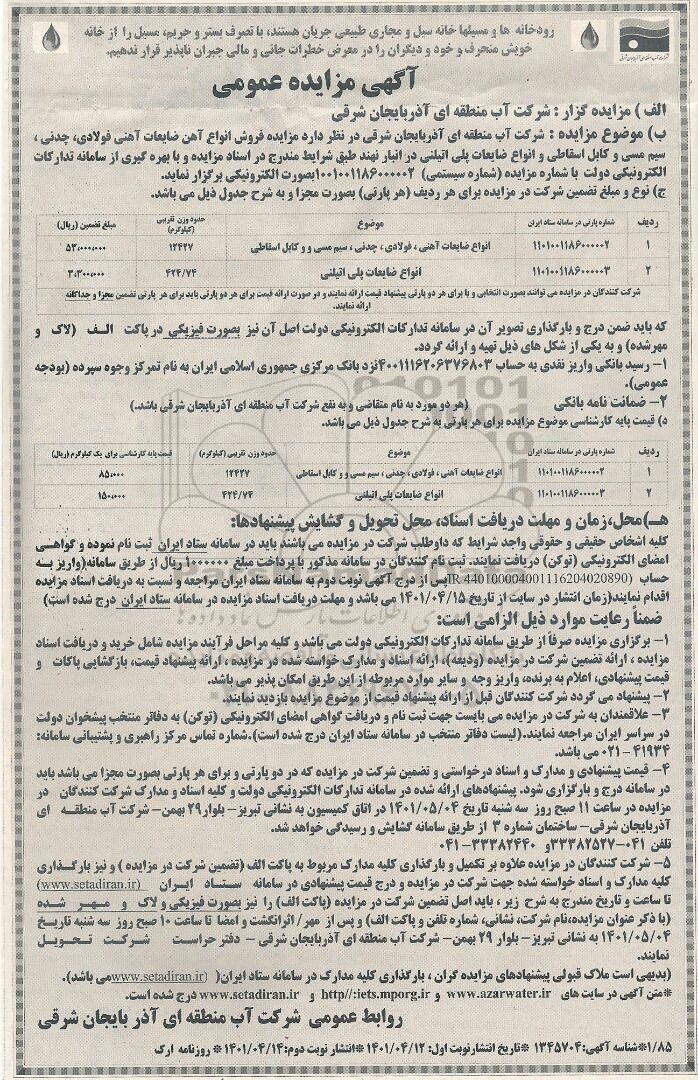 رودخانه ها و مسیلها خانه سیل و مجاری طبیعی جریان هستند، با تصرف بستر و حریم، مسیل را از خانه
خویش منحرف و خود و دیگران را در معرض خطرات جانی و مالی جبران ناپذیر قرار ندهیم.
شرکت آب منطقه ای آذربایجان شرقی
آگهی مزایده عمومی
الف ) مزایده گزار : شرکت آب منطقه ای آذربایجان شرقی
ب) موضوع مزایده : شرکت آب منطقه ای آذربایجان شرقی در نظر دارد مزایده فروش انواع آهن ضایعات آهنی فولادی، چدنی ،
سیم مسی و کابل اسقاطی و انواع ضایعات پلی اتیلنی در انبار نهند طبق شرایط مندرج در اسناد مزایده و با بهره گیری از سامانه تدارکات
الکترونیکی دولت با شماره مزایده (شماره سیستمی) ۱۰۰۱۰۰۱۱۸۶۰۰۰۰۰۲بصورت الکترونیکی برگزار نماید.
ج) نوع و مبلغ تضمین شرکت در مزایده برای هر ردیف (هر پارتی) بصورت مجزا و به شرح جدول ذیل می باشد.
ردیف شماره پارتی در سامانه ستاد ایران موضوع حدود وزن تقریبی (کیلوگرم) مبلغ تضمین (ریال)
۱ ۱۱۰۱۰۰۱۱۸۶۰۰۰۰۰۲ انواع ضایعات آهنی ، فولادی ، چدنی ، سیم مسی و و کابل اسقاطی ۱۲۴۲۷ ۵۳،۰۰۰،۰۰۰
۲ ۱۱۰۱۰۰۱۱۸۶۰۰۰۰۰۳ انواع ضایعات پلی اتیلنی ۴۲۴/۷۴ ۳،۳۰۰،۰۰۰
شرکت کنندگان در مزایده می توانند بصورت انتخابی و یا برای هر دو پارتی پیشنهاد قیمت ارائه نمایند و در صورت ارائه قیمت برای هر دو پارتی باید برای هر پارتی تضمین مجزا و جداگانه
ارائه نمایند.
که باید ضمن درج و بارگذاری تصویر آن در سامانه تدارکات الکترونیکی دولت اصل آن نیز بصورت فیزیکی در پاکت الف (لاک و
مهرشده) و به یکی از شکل های ذیل تهیه و ارائه گردد.
۱- رسید بانکی واریز نقدی به حساب ۴۰۰۱۱۱۶۲۰۶۳۷۶۸۰۳نزد بانک مرکزی جمهوری اسلامی ایران به نام تمرکز وجوه سپرده (بودجه
عمومی).
۲- ضمانت نامه بانکی (هر دو مورد به نام متقاضی و به نفع شرکت آب منطقه ای آذربایجان شرقی باشد.)
د) قیمت پایه کارشناسی موضوع مزایده برای هر پارتی به شرح جدول ذیل می باشد.
ردیف شماره پارتی در سامانه ستاد ایران موضوع حدود وزن تقریبی (کیلوگرم) قیمت پایه کارشناسی برای یک کیلوگرم (ریال)
۱ ۱۱۰۱۰۰۱۱۸۶۰۰۰۰۰۲ انواع ضایعات آهنی ، فولادی ، چدنی ، سیم مسی و و کابل اسقاطی ۱۲۴۲۷ ۸۵،۰۰۰
۲ ۱۱۰۱۰۰۱۱۸۶۰۰۰۰۰۳ انواع ضایعات پلی اتیلنی ۴۲۴/۷۴ ۱۵۰،۰۰۰
هـ)محل،زمان و مهلت دریافت اسناد، محل تحویل و گشایش پیشنهادها:
کلیه اشخاص حقیقی و حقوقی واجد شرایط که داوطلب شرکت در مزایده می باشند باید در سامانه ستاد ایران ثبت نام نموده و گواهی
امضای الکترونیکی (توکن) دریافت نمایند. ثبت نام کنندگان در سامانه مذکور با پرداخت مبلغ ۱،۰۰۰،۰۰۰ ریال از طریق سامانه(واریز به
حساب (IR 440100004001116204020890)پس از درج آگهی نوبت دوم به سامانه ستاد ایران مراجعه و نسبت به دریافت اسناد مزایده
اقدام نمایند(زمان انتشار در سایت از تاریخ ۱۴۰۱/۰۴/۱۵ می باشد و مهلت دریافت اسناد مزایده در سامانه ستاد ایران درج شده است)
ضمناً رعایت موارد ذیل الزامی است:
۱- برگزاری مزایده صرفاً از طریق سامانه تدارکات الکترونیکی دولت می باشد و کلیه مراحل فرآیند مزایده شامل خرید و دریافت اسناد
مزایده ، ارائه تضمین شرکت در مزایده (ودیعه)، ارائه اسناد و مدارک خواسته شده در مزایده ، ارائه پیشنهاد قیمت، بازگشایی پاکات و
قیمت پیشنهادی، اعلام به برنده، واریز وجه و سایر موارد مربوطه از این طریق امکان پذیر می باشد.
۲- پیشنهاد می گردد شرکت کنندگان قبل از ارائه پیشنهاد قیمت از موضوع مزایده بازدید نمایند.
۳- علاقمندان به شرکت در مزایده می بایست جهت ثبت نام و دریافت گواهی امضای الکترونیکی (توکن) به دفاتر منتخب پیشخوان دولت
در سراسر ایران مراجعه نمایند.(لیست دفاتر منتخب در سامانه ستاد ایران درج شده است).شماره تماس مرکز راهبری و پشتیبانی سامانه:
۰۲۱-۴۱۹۳۴ می باشد.
۴- قیمت پیشنهادی و مدارک و اسناد درخواستی و تضمین شرکت در مزایده که در دو پارتی و برای هر پارتی بصورت مجزا می باشد باید
در سامانه درج و بارگزاری شود. پیشنهادهای ارائه شده در سامانه تدارکات الکترونیکی دولت و کلیه اسناد و مدارک شرکت کنندگان در
مزایده در ساعت ۱۱ صبح روز سه شنبه تاریخ ۱۴۰۱/۰۵/۰۴ در اتاق کمیسیون به نشانی تبریز- بلوار۲۹ بهمن- شرکت آب منطقه ای
آذربایجان شرقی- ساختمان شماره ۳ از طریق سامانه گشایش و رسیدگی خواهد شد.
تلفن ۰۴۱-۳۳۳۸۲۵۲۷و ۳۳۳۸۲۴۴۰-۰۴۱
۵- شرکت کنندگان در مزایده علاوه بر تکمیل و بارگذاری کلیه مدارک مربوط به پاکت الف (تضمین شرکت در مزایده ) و نیز بارگـذاری
کلیه مدارک و اسناد خواسته شده جهت شرکت در مزایده و درج قیمت پیشنهادی در سامانه ستاد ایران (www.setadiran.ir)
تا ساعت و تاریخ مندرج به شرح زیر ، باید اصل تضمین شرکت در مزایده (پاکت الف) را نیز بصورت فیزیکی و لاک و مهر شده
(با ذکر عنوان مزایده،نام شرکت، نشانی، شماره تلفن و پاکت الف) و پس از مهر/ اثرانگشت و امضا تا ساعت ۱۰ صبح روز سه شنبه تاریخ
۱۴۰۱/۰۵/۰۴ به نشانی تبریز- بلوار ۲۹ بهمن- شرکت آب منطقه ای آذربایجان شرقی - دفتر حراست شرکت تحویل
نمایند.
(بدیهی است ملاک قبولی پیشنهادهای مزایده گران ، بارگذاری کلیه مدارک در سامانه ستاد ایران( www.setadiran.ir)می باشد).
*متن آگهی در سایت های www.azarwater.ir و http//:iets.mporg.ir و www.setadiran.ir درج شده است.
روابط عمومی شرکت آب منطقه ای آذر بایجان شرقی
۱/۸۵*شناسه آگهی:۱۳۴۵۷۰۴ *تاریخ انتشارنوبت اول: ۱۴۰۱/۰۴/۱۲ *انتشار نوبت دوم:۱۴۰۱/۰۴/۱۴ * روزنامه ارک